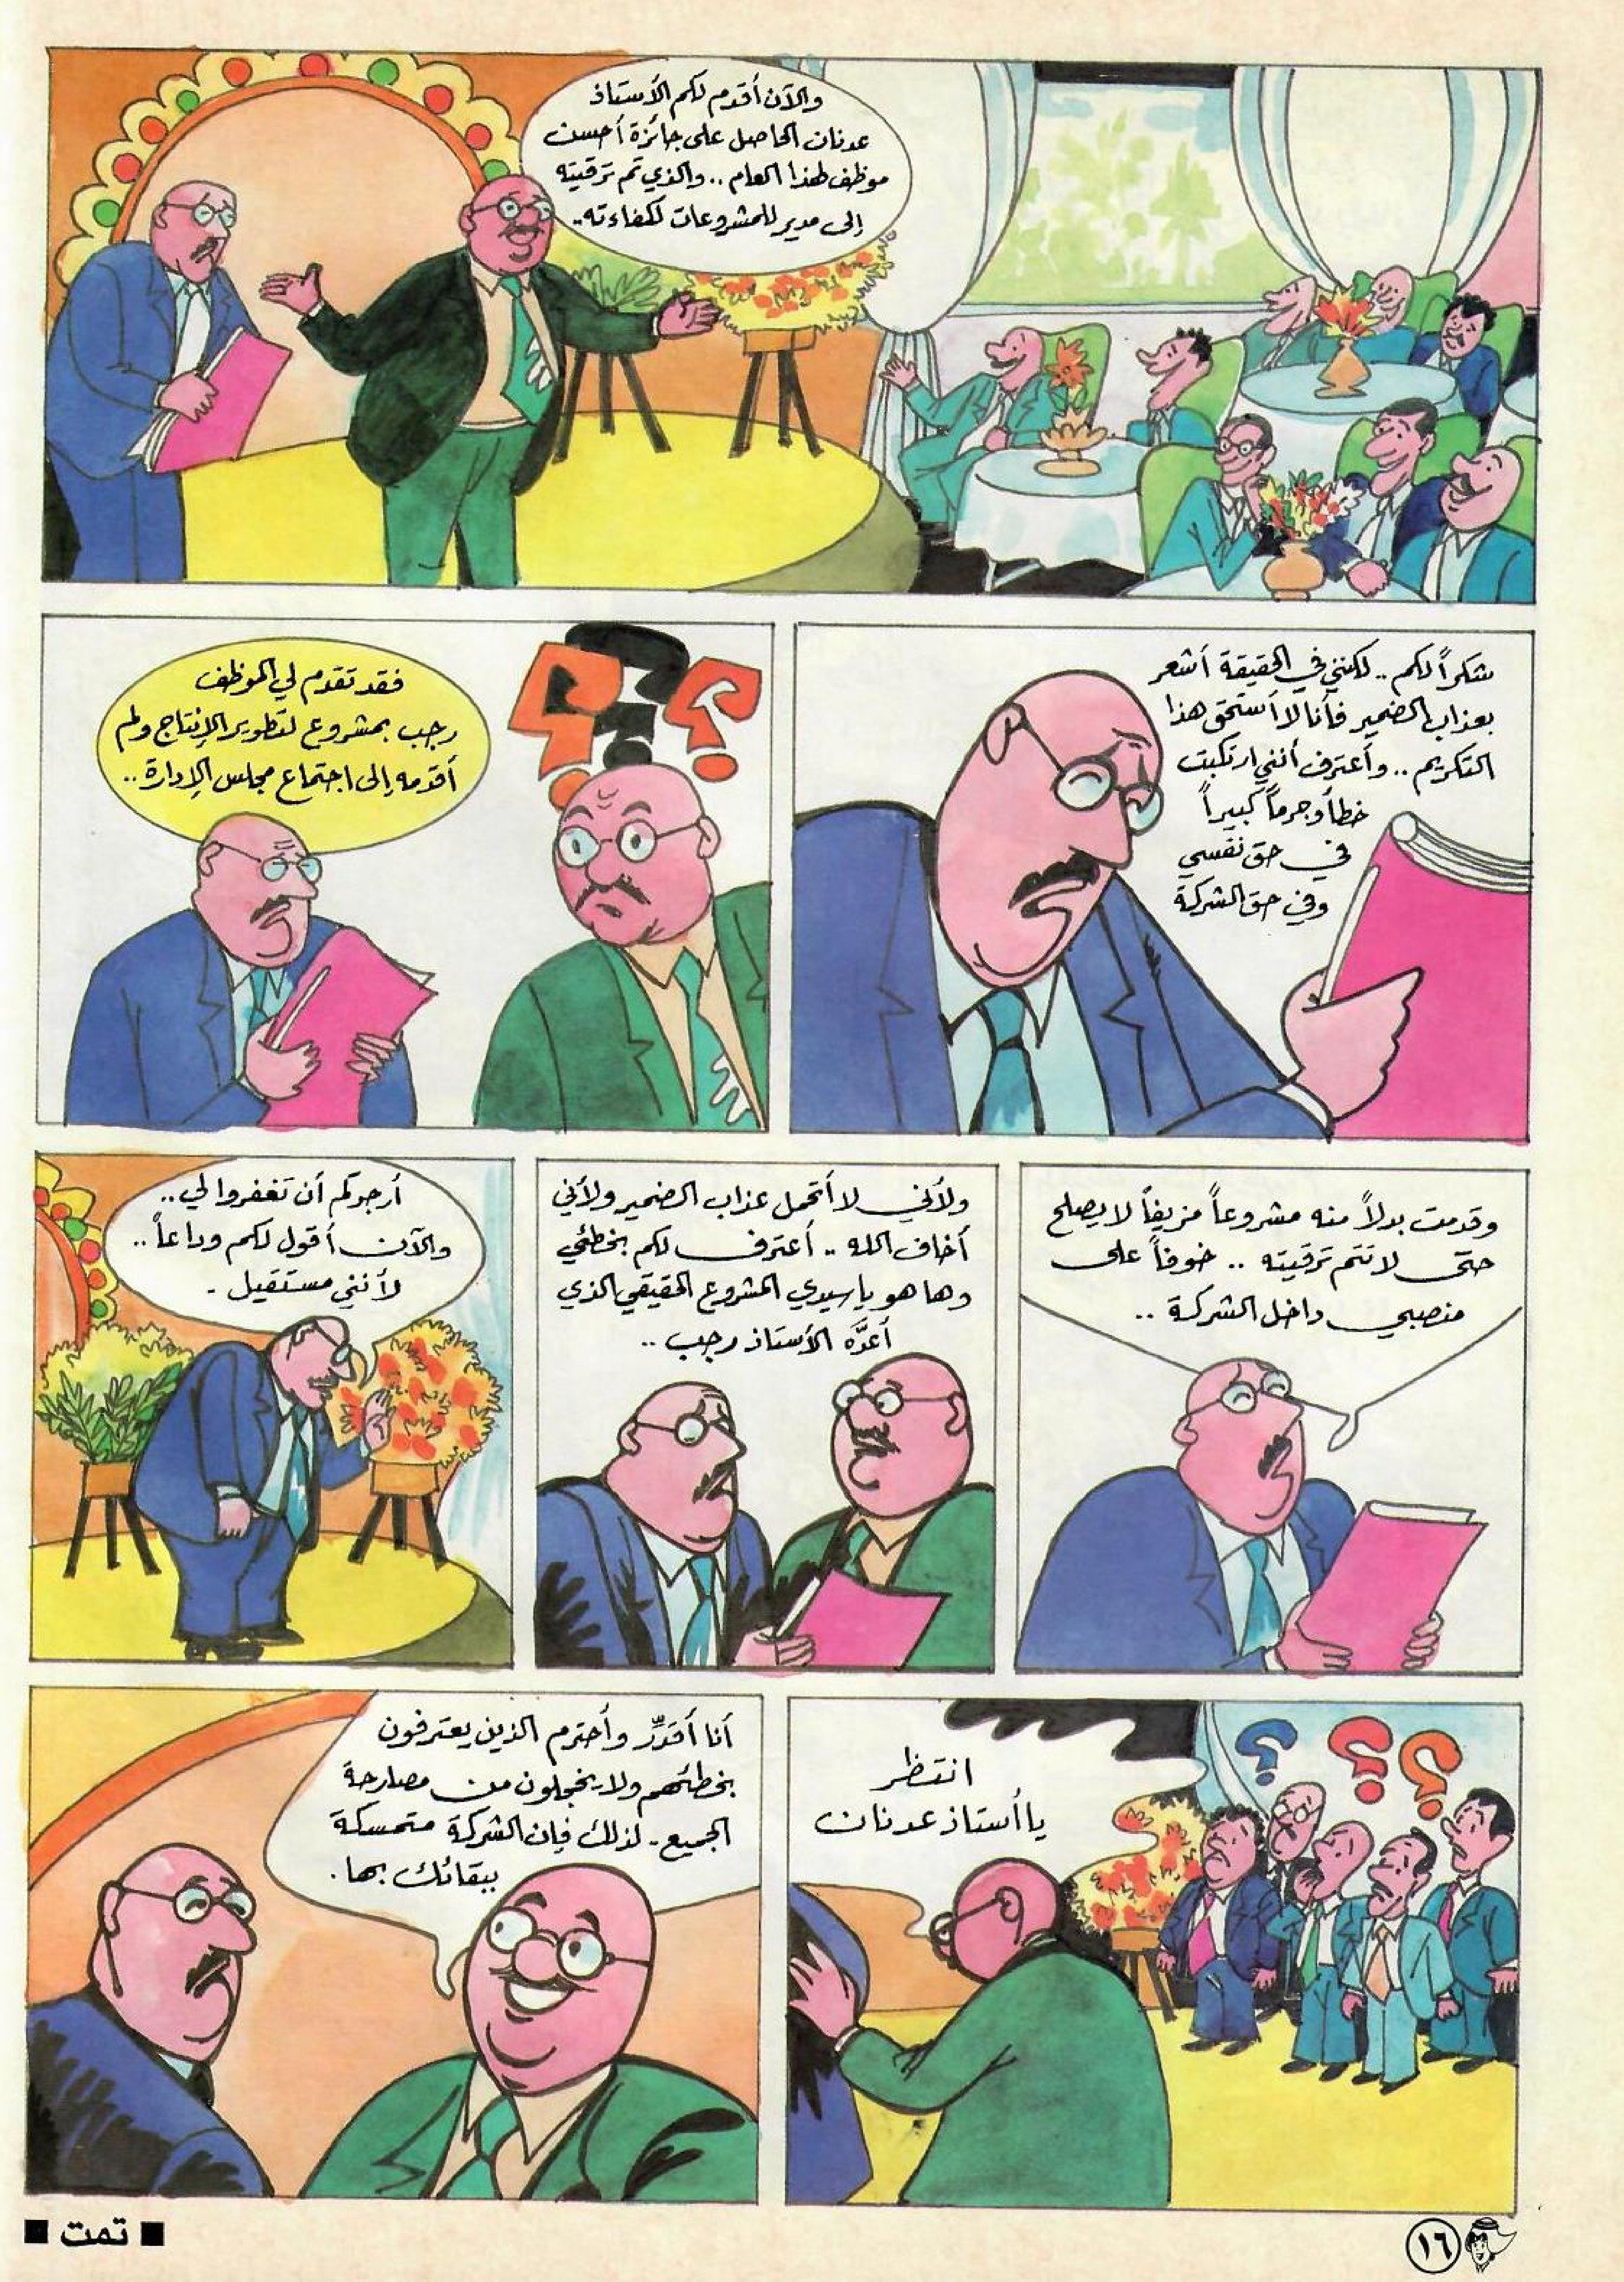 والآن أقدم لكم الأستاذ
عدنان الحاصل على جائزة أحسن
موظف لهذا العام .. والذي تم ترقيته
إلى مدير للمشروعات لكفاءته..
شكراً لكم .. لكنني في الحقيقة أشعر
بعذاب الضمير فأنا لا أستحق هذا
التكريم .. وأعترف أنني ارتكبت
خطأ وجرماً كبيراً
في حق نفسي
وفي حق الشركة
فقد تقدم لي الموظف
رجب بمشروع لتطوير الإنتاج ولم
أقدمه إلى اجتماع مجلس الإدارة ..
وقدمت بدلاً منه مشروعاً مزيفاً لا يصلح
حتى لا تتم ترقيته .. خوفاً على
منصبي داخل الشركة ..
ولأني لا أتحمل عذاب الضمير ولأني
أخاف الله .. أعترف لكم بخطئي
وها هو يا سيدي المشروع الحقيقي الذي
أعدَّه الأستاذ رجب ..
أرجوكم أن تغفروا لي ..
والآن أقول لكم وداعاً ..
لأنني مستقيل .
انتظر
يا أستاذ عدنان
أنا أقدِّر وأحترم الذين يعترفون
بخطئهم ولا يخجلون من مصارحة
الجميع . لذلك فإن الشركة متمسكة
ببقائك بها .
■ تمت ■
١٦